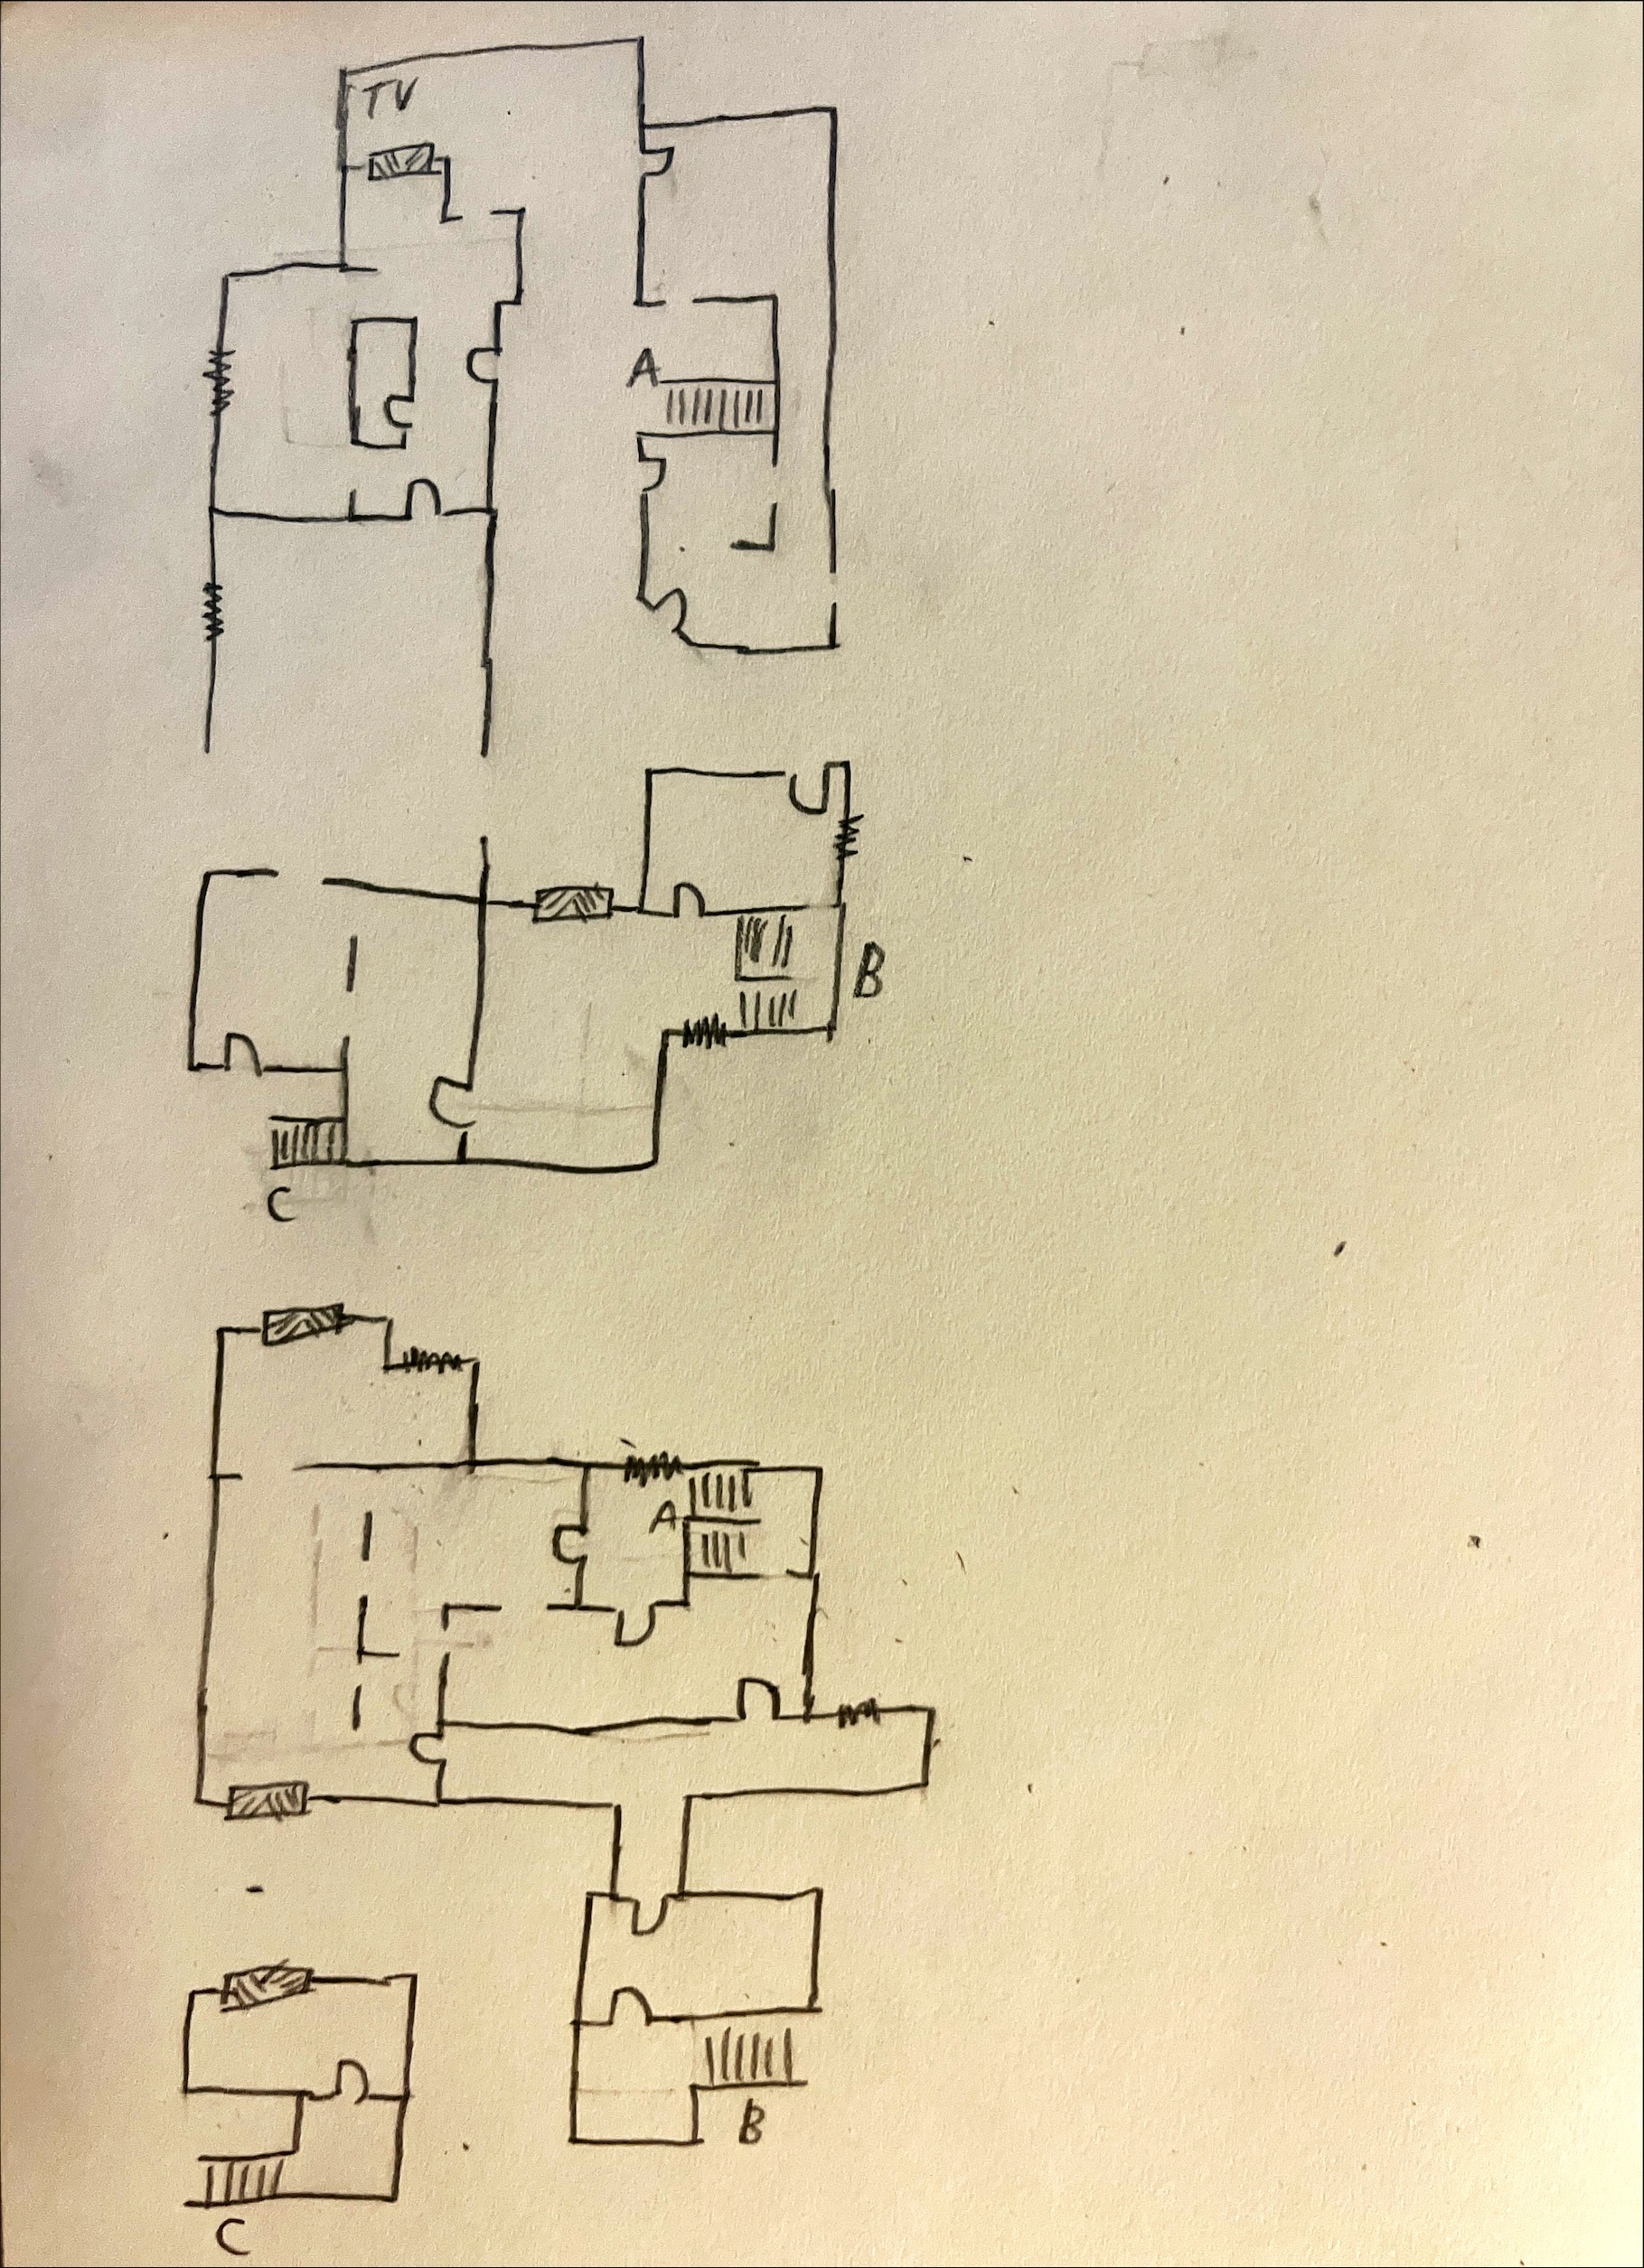 TV
A
B
C
A
B
C